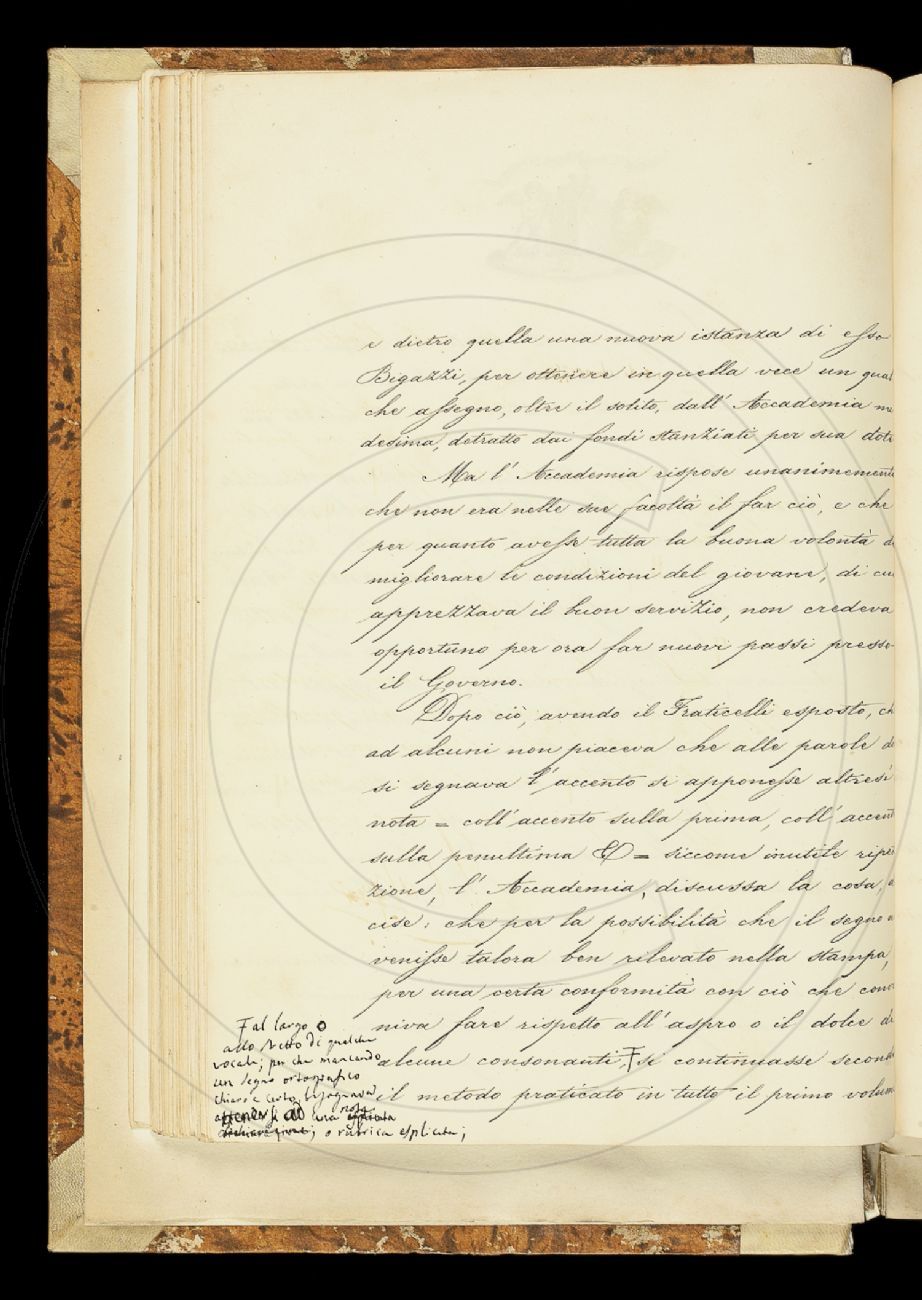 e dietro quella una nuova istanza di esso
Bigazzi, per ottenere in quella vece un qual
che assegno, oltre il solito, dall' Accademia me
desima, detratto dai fondi stanziati per sua dote
Ma l' Accademia rispose unanimemente
che non era nelle sue facoltà il far ciò, e che
per quanto avesse tutta la buona volontà di
migliorare le condizioni del giovane, di cui
apprezzava il buon servizio, non credeva
opportuno per ora far nuovi passi presso
il Governo.
Dopo ciò, avendo il Fraticelli esposto, ch
ad alcuni non piaceva che alle parole do
si segnava l' accento si apponesse altresì
nota = coll' accento sulla prima, coll' accent
sulla penultima &c = siccome inutile ripe
zione, l' Accademia, discussa la cosa, 
cise: che per la possibilità che il segno
venisse talora ben rilevato nella stampa,
per una certa conformità con ciò che conve
niva fare rispetto all' aspro o il dolce di
alcune consonanti, Ŧ si continuasse secondo
il metodo praticato in tutto il primo volume
Ŧ al largo o
allo stretto di qualche
vocale; per che mancando
un segno ortografico
chiaro e certo bisognava
attenersi ad una nota
o rubrica esplicata;